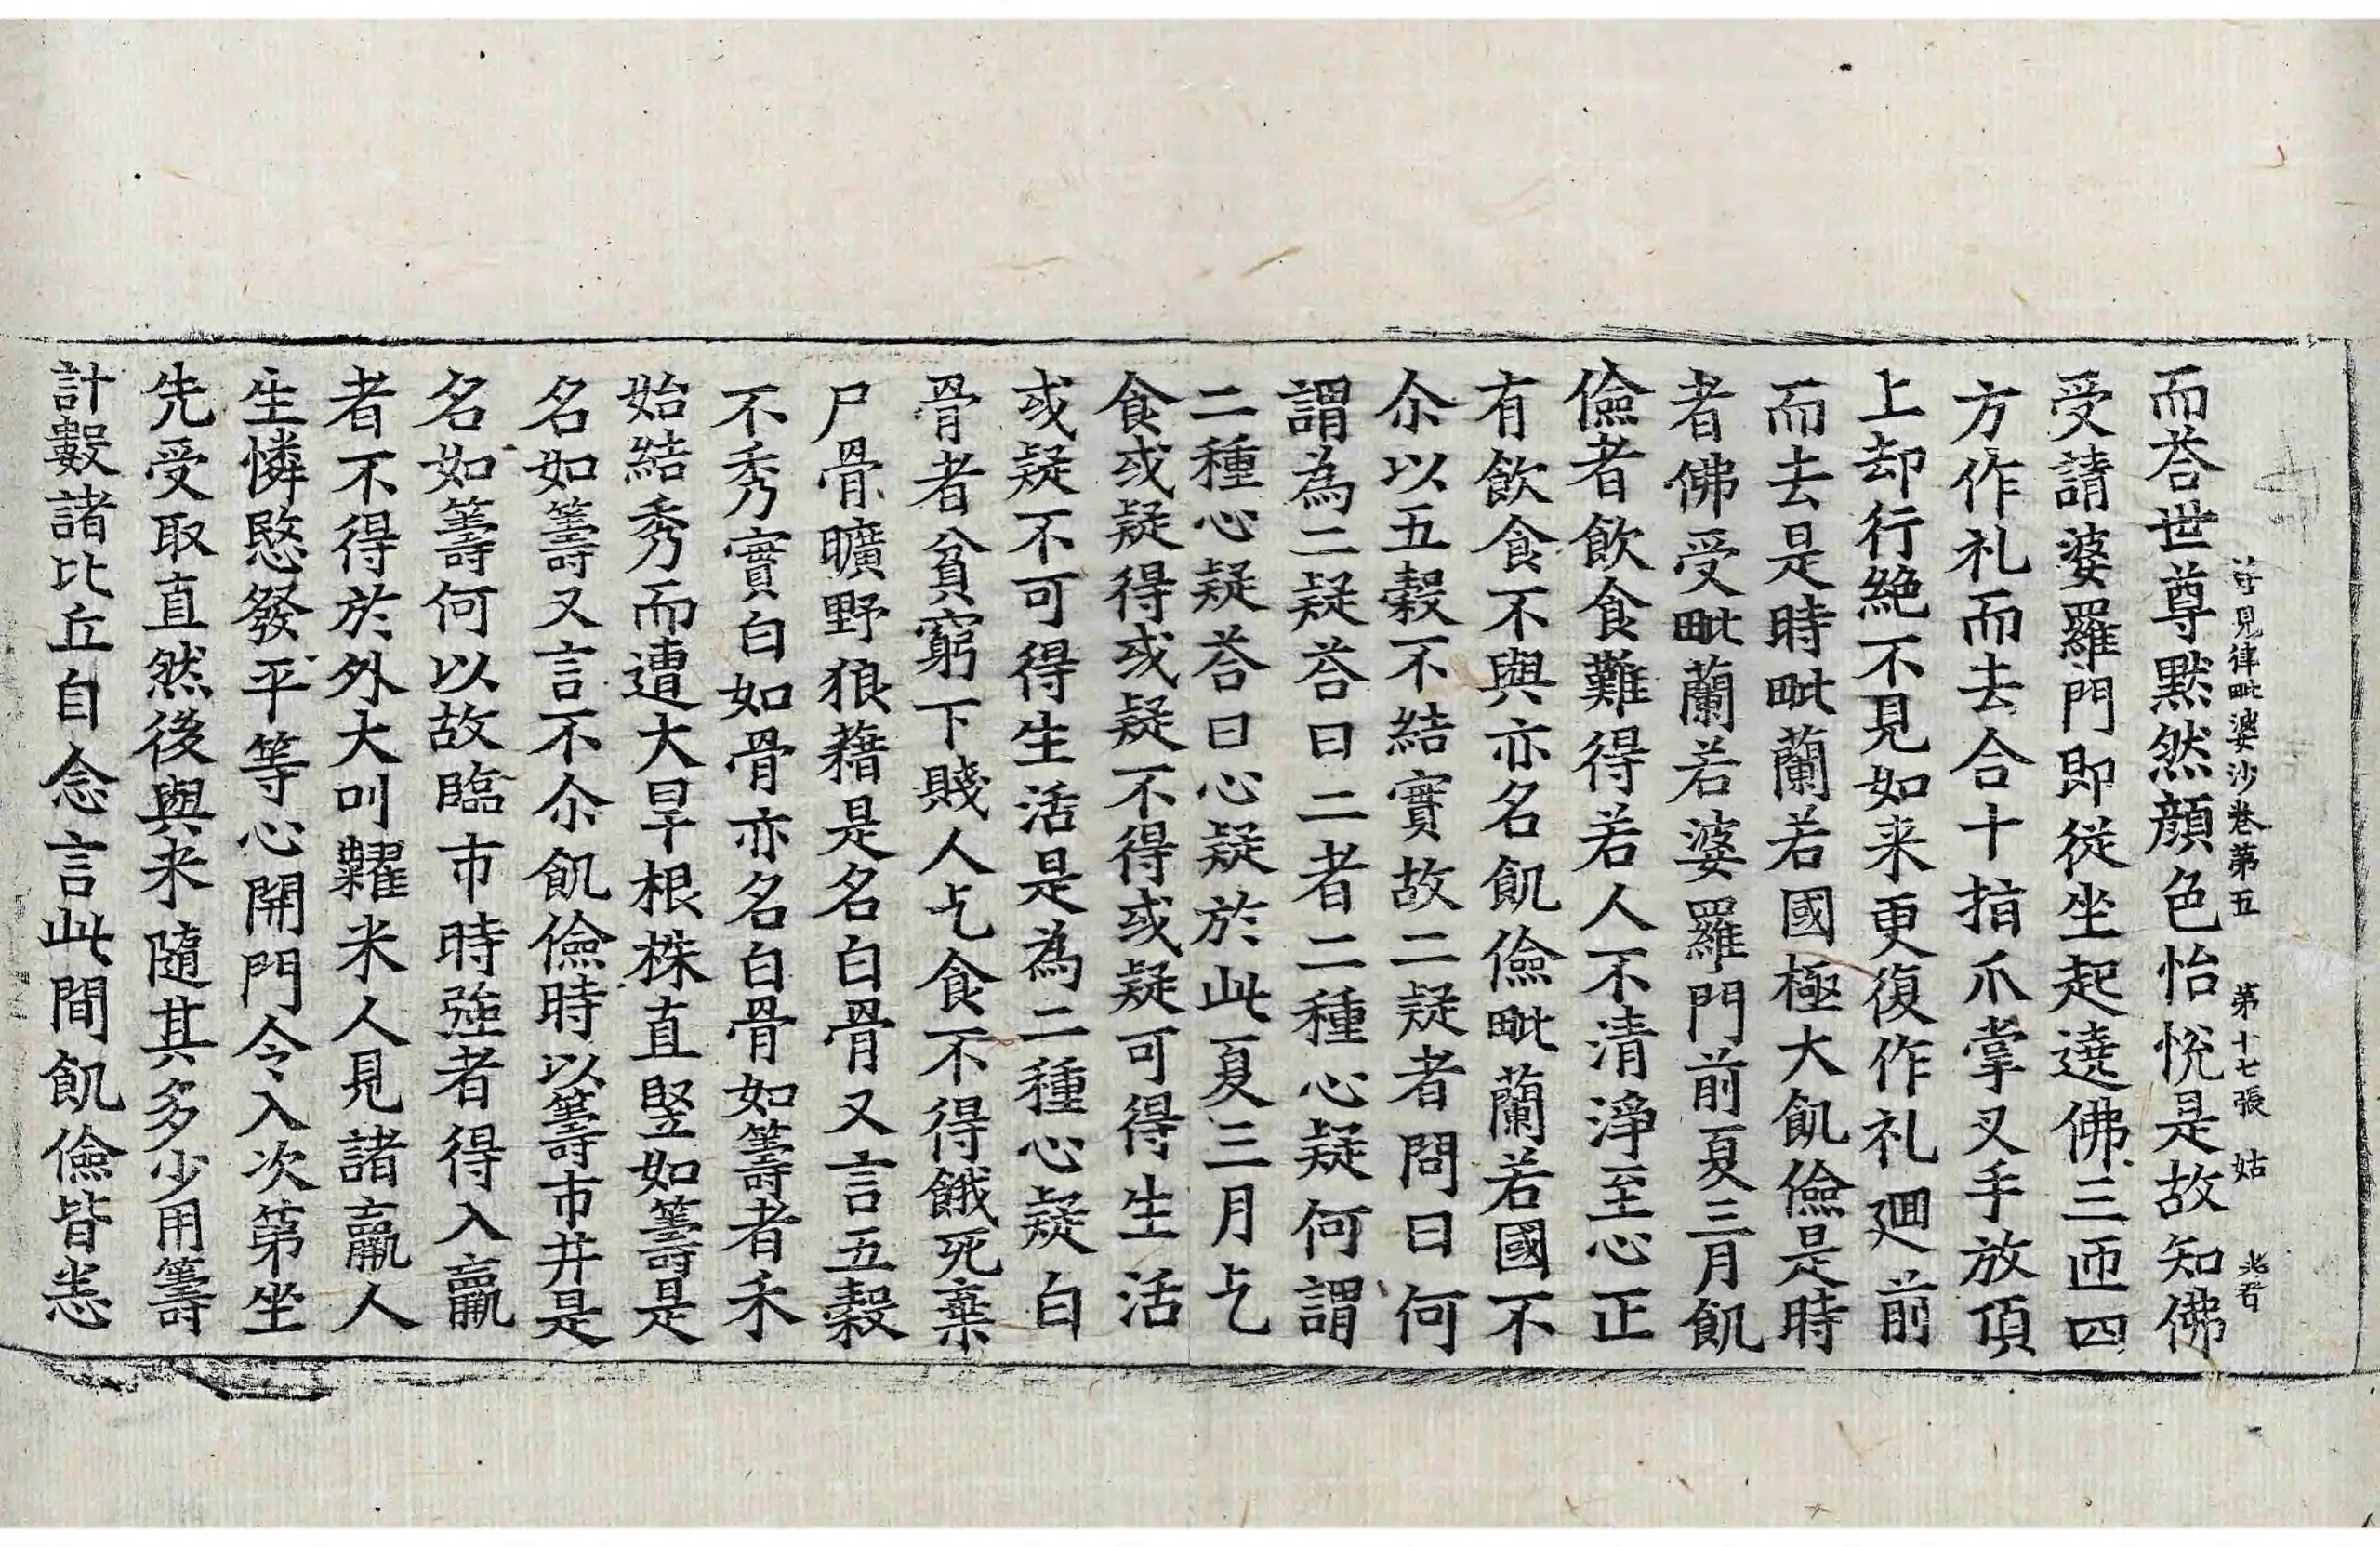 善見律毗婆沙卷第五 第十七張 姑
而荅世尊默然顔色怡悅是故知佛
受請婆羅門即從坐起遶佛三匝四
方作礼而去合十指爪掌叉手放頂
上却行絶不見如来更復作礼迴前
而去是時毗蘭若國極大飢儉是時
者佛受毗蘭若婆羅門前夏三月飢
儉者飲食難得若人不清淨至心正
有飲食不與亦名飢儉毗蘭若國不
尒以五穀不結實故二疑者問曰何
謂為二疑荅曰二者二種心疑何謂
二種心疑荅曰心疑於此夏三月乞
食或疑得或疑不得或疑可得生活
或疑不可得生活是為二種心疑白
骨者貧窮下賤人乞食不得餓死棄
尸骨曠野狼藉是名白骨又言五穀
不秀實白如骨亦名白骨如籌者禾
始結秀而遭大旱根株直竪如籌是
名如籌又言不尒飢儉時以籌市井是
名如籌何以故臨市時強者得入羸
者不得於外大叫糴米人見諸羸人
生憐愍發平等心開門令入次第坐
先受取直然後與米隨其多少用籌
計數諸比丘自念言此間飢儉皆悉